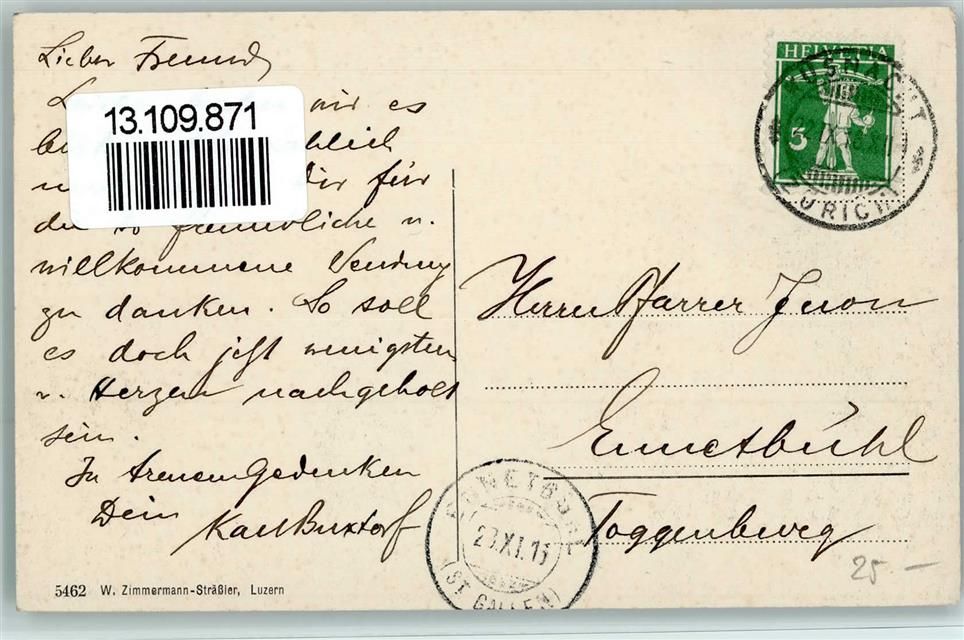 Lieber Freund
13.109.871
mir es
Dir für
die so freundliche u.
willkommene Sendung
zu danken. So soll
es doch jetzt wenigstens
v. Herzen nachgeholt
sein.
In treuem Gedenken
Dein
Karl Buxtorf
5462 W. Zimmermann-Sträßler, Luzern
HELVETIA
5
KÜSNACHT
ZÜRICH
Herrn Pfarrer Juon
Ennetbühl
Toggenburg
ENNETBÜHL
(ST. GALLEN)
25.—